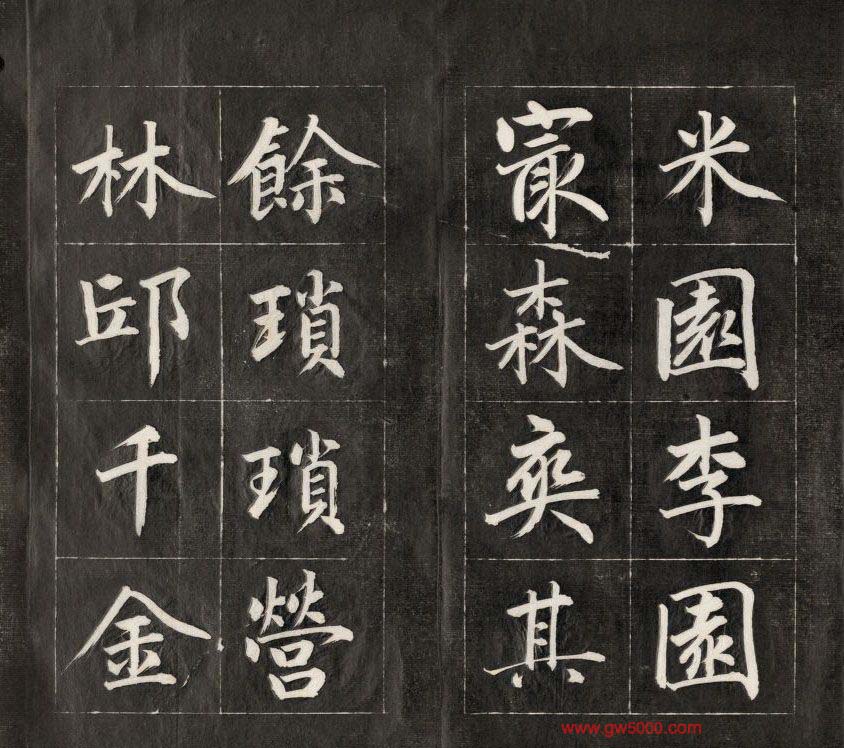 米園李園
寂森奕其
餘瑣瑣營
林邱千金
www.gw5000.com